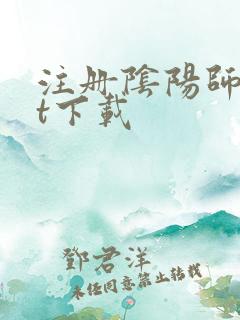 注册陰陽師
t下載
鄧君洋
未任同意禁止转载